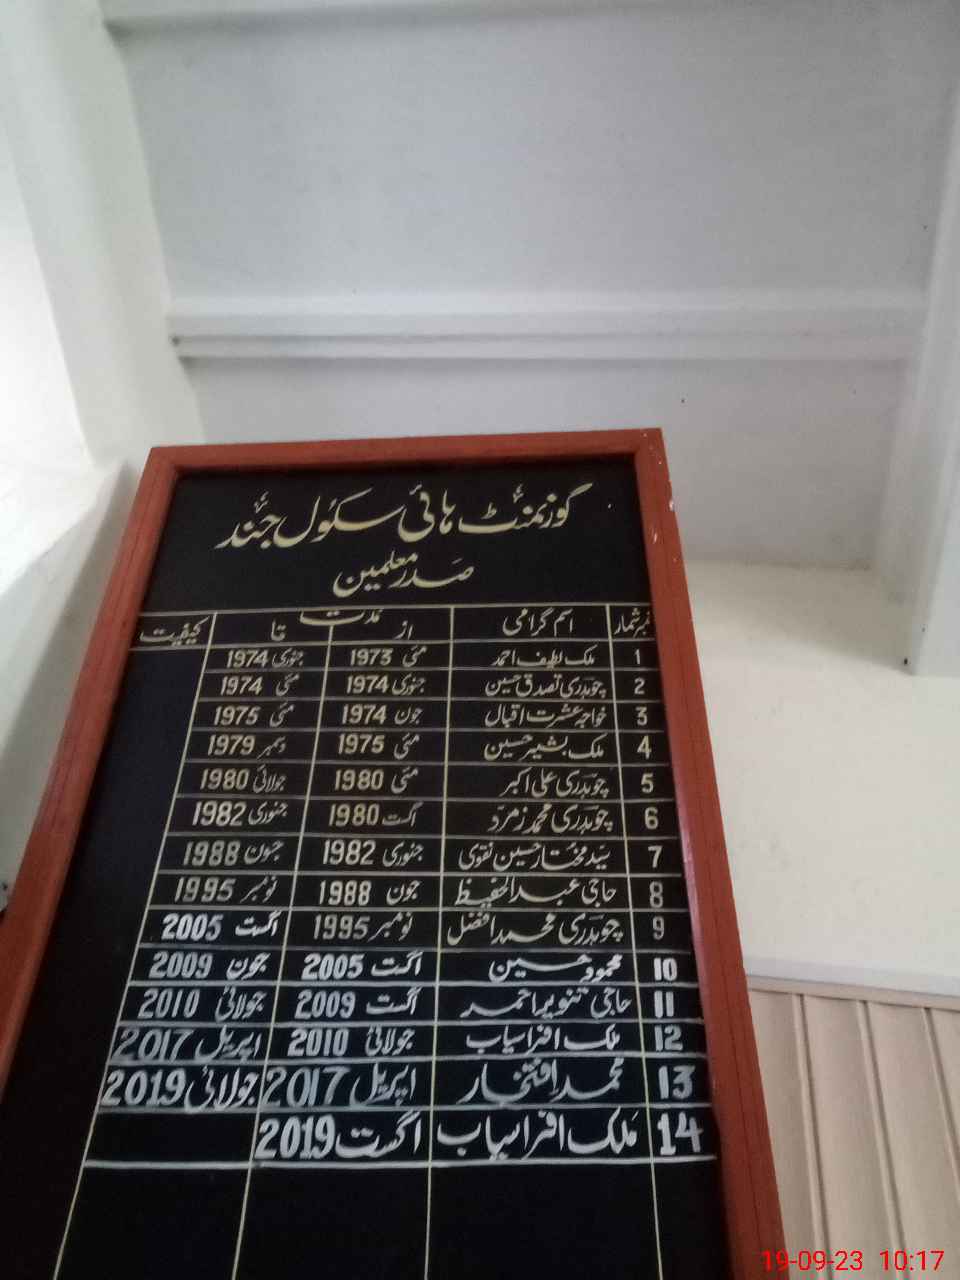 گورنمنٹ ہائی سکول جنڈ
صدر معلمین
نمبر شمار اسم گرامی مدت کیفیت
از تا
1 ملک لطیف احمد مئی 1973 جنوری 1974
2 چوہدری تصدق حسین جنوری 1974 مئی 1974
3 خواجہ عشرت اقبال جون 1974 مئی 1975
4 ملک بشیر حسین مئی 1975 دسمبر 1979
5 چوہدری علی اکبر مئی 1980 جولائی 1980
6 چوہدری محمد زمرد اگست 1980 جنوری 1982
7 سید مختار حسین نقوی جنوری 1982 جون 1988
8 حاجی عبدالحفیظ جون 1988 نومبر 1995
9 چوہدری محمد افضل نومبر 1995 اگست 2005
10 محمود حسین اگست 2005 جون 2009
11 حاجی تنویر احمد اگست 2009 جولائی 2010
12 ملک افراسیاب جولائی 2010 اپریل 2017
13 محمد افتخار اپریل 2017 جولائی 2019
14 ملک افراسیاب اگست 2019
19-09-23 10:17